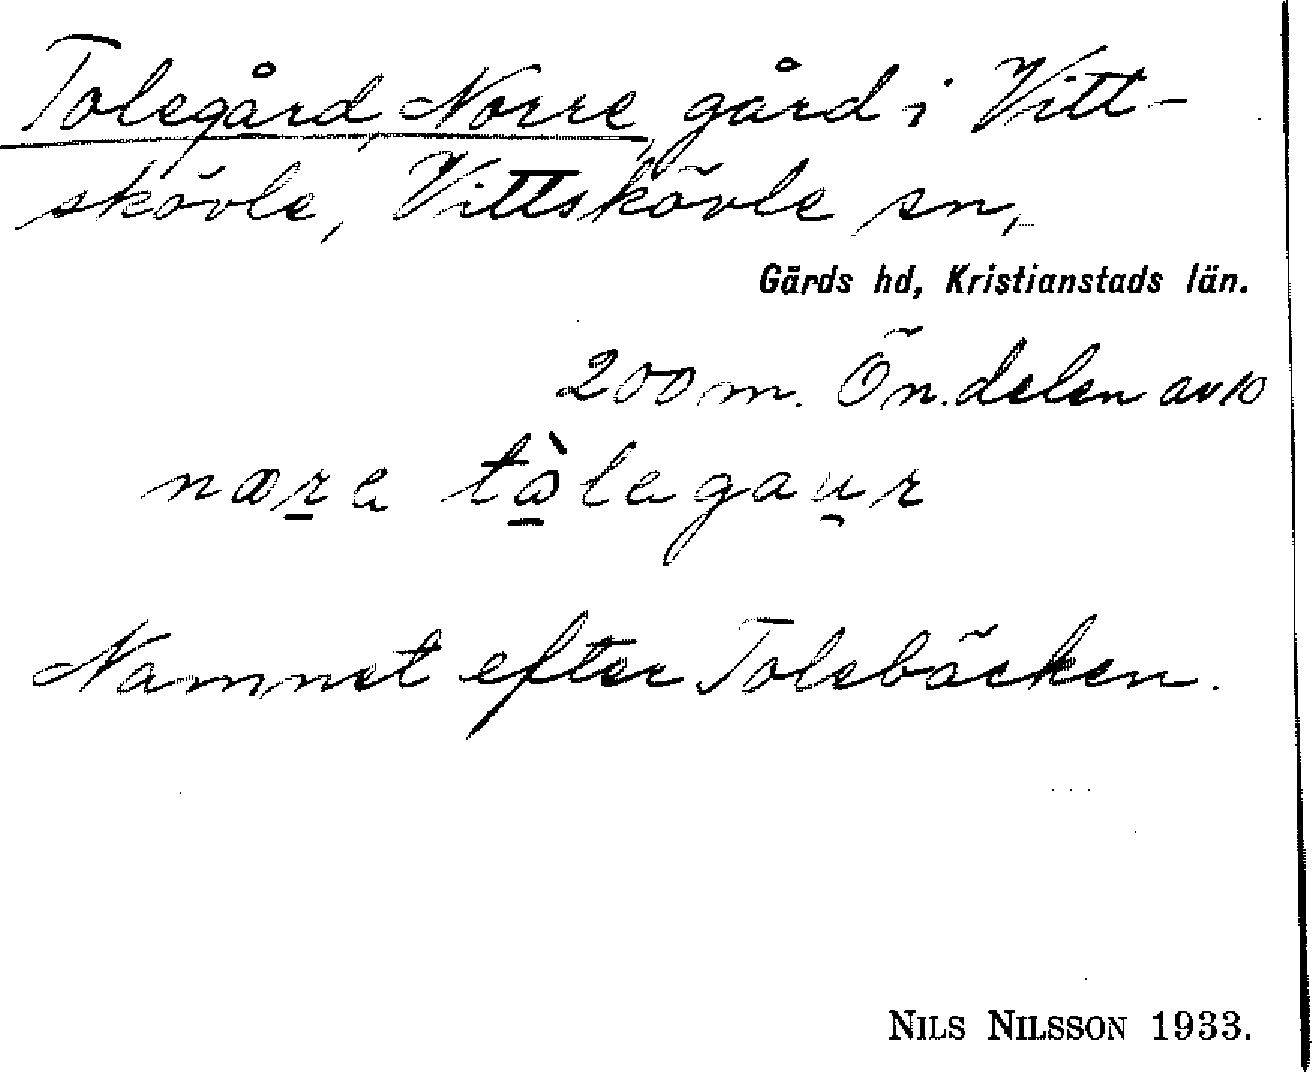 Tolegård, Norre, gård i Vitt-
skövle, Vittskövle sn,
Gärds hd, Kristianstads län.
200 m. Ö n. delen av 10
næra tòlagau̯r
Namnet efter Tolebäcken.
NILS NILSSON 1933.